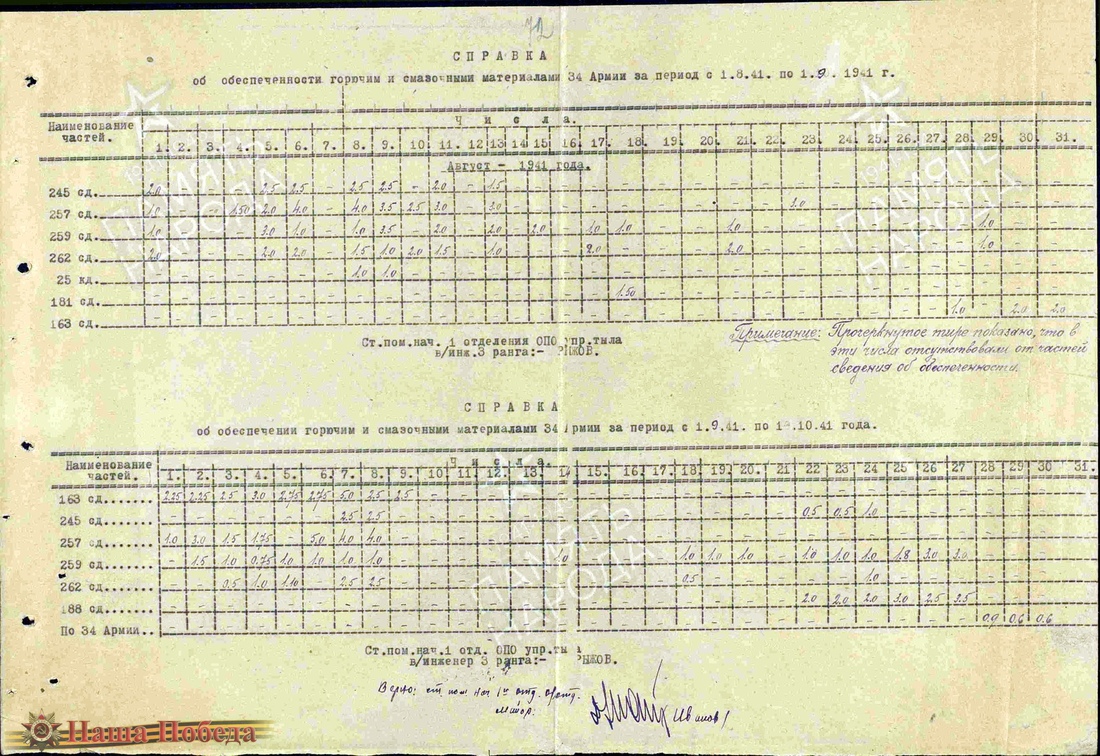 72
СПРАВКА
об обеспеченности горючим и смазочными материалами 34 Армии за период с 1.8.41. по 1.9. 1941 г.
Наименование частей. Числа.
1. 2. 3. 4. 5. 6. 7. 8. 9. 10. 11. 12 13 14 15. 16. 17. 18. 19. 20. 21. 22. 23. 24. 25. 26. 27. 28. 29. 30. 31.
Август - 1941 года.
245 сд. 2.0 - - - 2.5 2.5 - 2.5 2.5 - 2.0 - 1.5
257 сд. 1.0 - - 1.50 2.0 4.0 - 4.0 3.5 2.5 3.0 - 3.0 - 1.0
259 сд. 1.0 - - - 3.0 1.0 - 1.0 3.5 - 2.0 - 2.0 - 2.0 - 1.0 1.0 - - 1.0 - 1.0
262 сд. 2.0 - - - 2.0 2.0 - 1.5 1.0 2.0 1.5 - 1.0 - 2.0 - 2.0 - 1.0
25 кд. 1.0 1.0
181 сд. 1.50
163 сд. 1.0 - 2.0 2.0
Ст.пом.нач. 1 отделения ОПО упр.тыла
в/инж.3 ранга:- РЫЖОВ.
Примечание: Прочеркнутое тире показано, что в
эти числа отсутствовали от частей
сведения об обеспеченности.
СПРАВКА
об обеспечении горючим и смазочными материалами 34 Армии за период с 1.9.41. по 1 .10.41 года.
Наименование частей. Числа.
1. 2. 3. 4. 5. 6. 7. 8. 9. 10 11. 12. 13. 14 15. 16. 17. 18. 19. 20. 21 22 23 24 25 26 27 28 29 30 31.
163 сд....... 2.25 2.25 2.5 3.0 2.75 2.75 5.0 2.5 2.5
245 сд....... 2.5 2.5 0.5 0.5 1.0
257 сд....... 1.0 3.0 1.5 1.75 - 5.0 4.0 4.0
259 сд....... - 1.5 1.0 0.75 1.0 1.0 1.0 1.0 1.0 1.0 1.0 1.0 - 1.0 1.0 1.0 1.8 3.0 3.0
262 сд....... 0.5 1.0 1.10 - 2.5 2.5 0.5 1.0
188 сд....... 2.0 2.0 2.0 3.0 2.5 3.5
По 34 Армии.. 0.9 0.6 0.6
Ст.пом.нач.1 отд. ОПО упр.тыла
в/инженер 3 ранга:- РЫЖОВ.
Верно: ст пом нач 1го отд.
майор: Иванов/
ПАМЯТЬ НАРОДА
ПАМЯТЬ НАРОДА
ПАМЯТЬ НАРОДА
Наша Победа